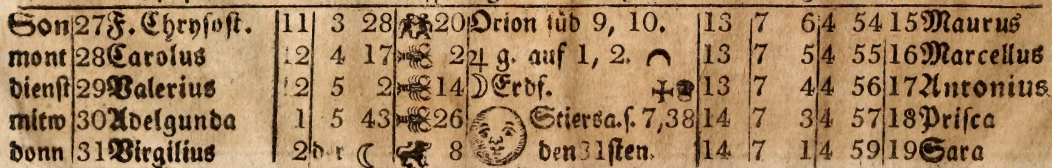 Son 27 F. Chrysost. 11 3 28 20 Orion süd 9, 10. 13 7 6 4 54 15 Maurus
mont 28 Carolus 12 4 17 2 ♃ g. auf 1, 2. 13 7 5 4 55 16 Marcellus
dienst 29 Valerius 12 5 2 14 ☽ Erdf. 13 7 4 4 56 17 Antonius
mitw 30 Adelgunda 1 5 43 26 Stiersa. s. 7,38 14 7 3 4 57 18 Prisca
donn 31 Virgilius 2 d r ☾ 8 den 31sten. 14 7 1 4 59 19 Sara